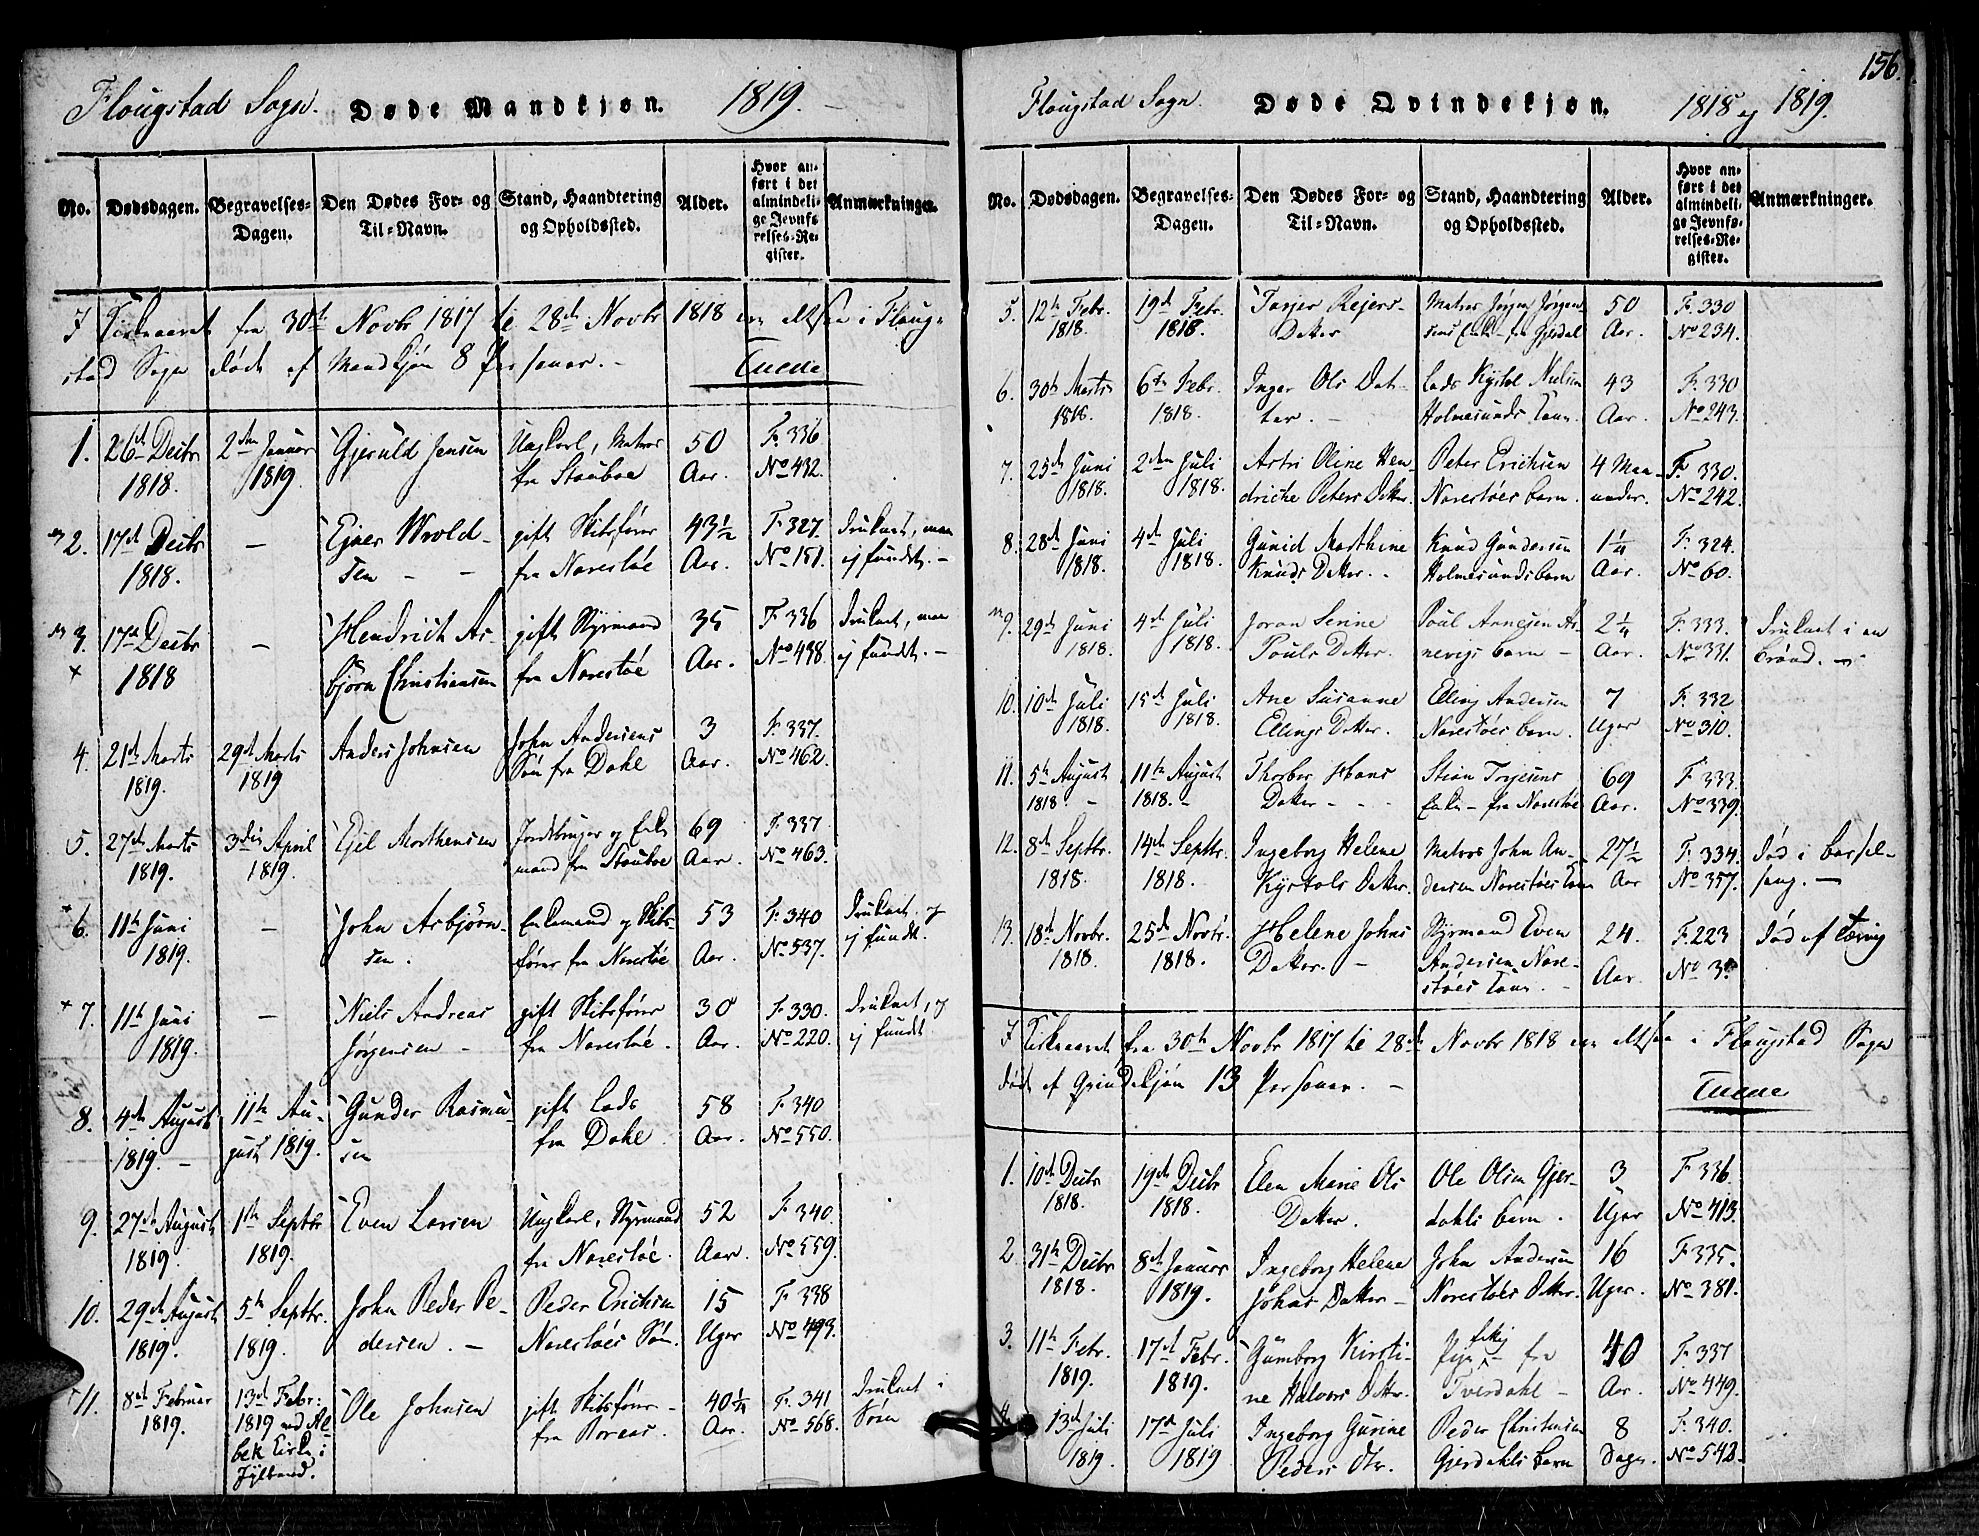 Flougstad Sogn. Døde Mandkjøn. 1819.
No. Dødsdagen. Begravelses-Dagen. Den Dødes For- og Til-Navn. Stand, Haandtering og Opholdssted. Alder. Hvor anført i det almindelige Jevnførelses-Register. Anmærkninger.
I Kirkeaaret fra 30te Novbr 1817 til 28de Novbr 1818 ere altsaa i Floug-
stad Sogn døde af Mandkjøn 8 Personer. -
Tuene
1. 26de Decbr 2den Januar Gjeruld Jensen Ungkarl, Matros 50 F. 336
1818. 1819. fra Stouboe Aar. No 432.
2. 17de Decbr - Ejner Wrold- gift Skibsfører 43½ F. 327. druknet, men
1818. sen - - fra Narestøe Aar. No 151. ej fundet. -
3. 17de Decbr - Hendrich As- gift Styrmand 35 F. 336 druknet, men
1818 bjørn Christiansen fra Narestøe Aar. No 438. ej fundet. -
4. 21de Marts 29de Marts Anders Johnsen John Andersens 3 F. 337.
1819. 1819 Søn fra Dahl Aar. No 462.
5. 27de Marts 3die April Ejel Morthensen Jordbruger og Enke- 69 F. 337
1819. 1819. mand fra Stouboe Aar. No 463.
6. 11te Juni - John Asbjørn- Enkemand og Skibs- 53 F. 340 druknet og
1819. sen. fører fra Narestøe Aar. No 537. ej fundet.
7. 11te Juni - Niels Andreas gift Skibsfører 30 F. 330. druknet, og
1819. Jørgensen - fra Narestøe. Aar. No 220. ej fundet.
8. 4de August 11te Au- Gunder Rasmu- gift Lods 58 F. 340
1819. - gust 1819. sen fra Dahl. Aar. No 550.
9. 27de August 1ste Septbr Even Larsen Ungkarl, Styrmand 52 F. 340.
1819. 1819. fra Narestøe. Aar. No 559.
10. 29de August 5te Septbr. John Peder Pe- Peder Erichsen 15 F. 338
1819. 1819. dersen. - Narestøes Søn. Uger No 493.
11. 8de Februar 13de Febr: Ole Johnsen gift Skibsfører - 40¼ F. 341. druknet i
1819. 1819 ved Al- fra Boreas. Aar. No 568. Søen
bek Kirke i
Jylland.
156.
Flougstad Sogn. Døde Qvindekjøn. 1818 og 1819.
No. Dødsdagen. Begravelses-Dagen. Den Dødes For- og Til-Navn. Stand, Haandtering og Opholdssted. Alder. Hvor anført i det almindelige Jevnførelses-Register. Anmærkninger.
5. 12te Febr. 19de Febr. Tarjer Rejers- Matros Jørgen Jørgen- 50 F. 330
1818. 1818. Datter sens Enke - fra Gjerdal Aar. No 234.
6. 30te Marts 6te Febr. Inger Ols Dat- Lods Kystol Nielsen 43 F. 330
1818. 1818. ter. - Holmesunds Kone. Aar. No 243.
7. 25de Juni 2den Juli Astri Oline Hen- Peter Erichsen 4 Maa- F. 330.
1818. 1818. driche Peters Datter. Narestøes barn. neder. No 242.
8. 28de Juni 4de Juli Gunild Marthine Knud Gundersen 1¼ F. 324.
1818. 1818. Knuds Datter. - Holmesunds barn Aar. No 60.
9. 29de Juni 4de Juli Joran Serine Poul Arnesen Ar- 2¼ F. 333. druknet i en
1818. 1818. Pouls Datter. nevigs barn - Aar. No 331. brønd. -
10. 10de Juli 15de Juli Ane Susanne Elling Andersen 7 F. 332
1818. 1818. Ellings Datter. Narestøes barn. Uger No 310.
11. 5te August 11te August Thorbor Hans Stian Terjesens 69 F. 333.
1818. - 1818. - Datter - - Enke - fra Narestøe Aar. No 339.
12. 8de Septbr. 14de Septbr. Ingeborg Helene Matros John An- 27½ F. 334. død i barsel-
1818. 1818. Kystols Datter. dersen Narestøes Kone Aar No 357. seng. -
13. 18de Novbr. 25de Novbr. Helene Johns Styrmand Even 24. F. 223 død af tæring
1818. 1818. Datter. - Andersen Nare- Aar. No 3.
støes Kone. -
I Kirkeaaret fra 30te Novbr 1817 til 28de Novbr 1818 ere altsaa i Flougstad Sogn
døde af Qvindekjøn 13 Personer. -
Tuene
1. 10de Decbr 19de Decbr Elen Marie Ols Ole Olsen Gjer- 3 F. 336.
1818. 1818. Datter. dahls barn. Uger No 413.
2. 31te Decbr 8de Januar Ingeborg Helene John Andersen 16 F. 335.
1818. 1819. Johns Datter - Narestøes Datter. Uger. No 381.
3. 11te Febr. 17de Febr. Gunborg Kirsti- Pige fra 40 F. 337
1819. 1819. ne Halvors Datter. Tverdahl - Aar. No 449.
4. 13de Juli 17de Juli Ingeborg Gurine Peder Christensen 8 F. 340.
1819. 1819 Peders Dtr. Gjerdahls barn Dage. No 542.